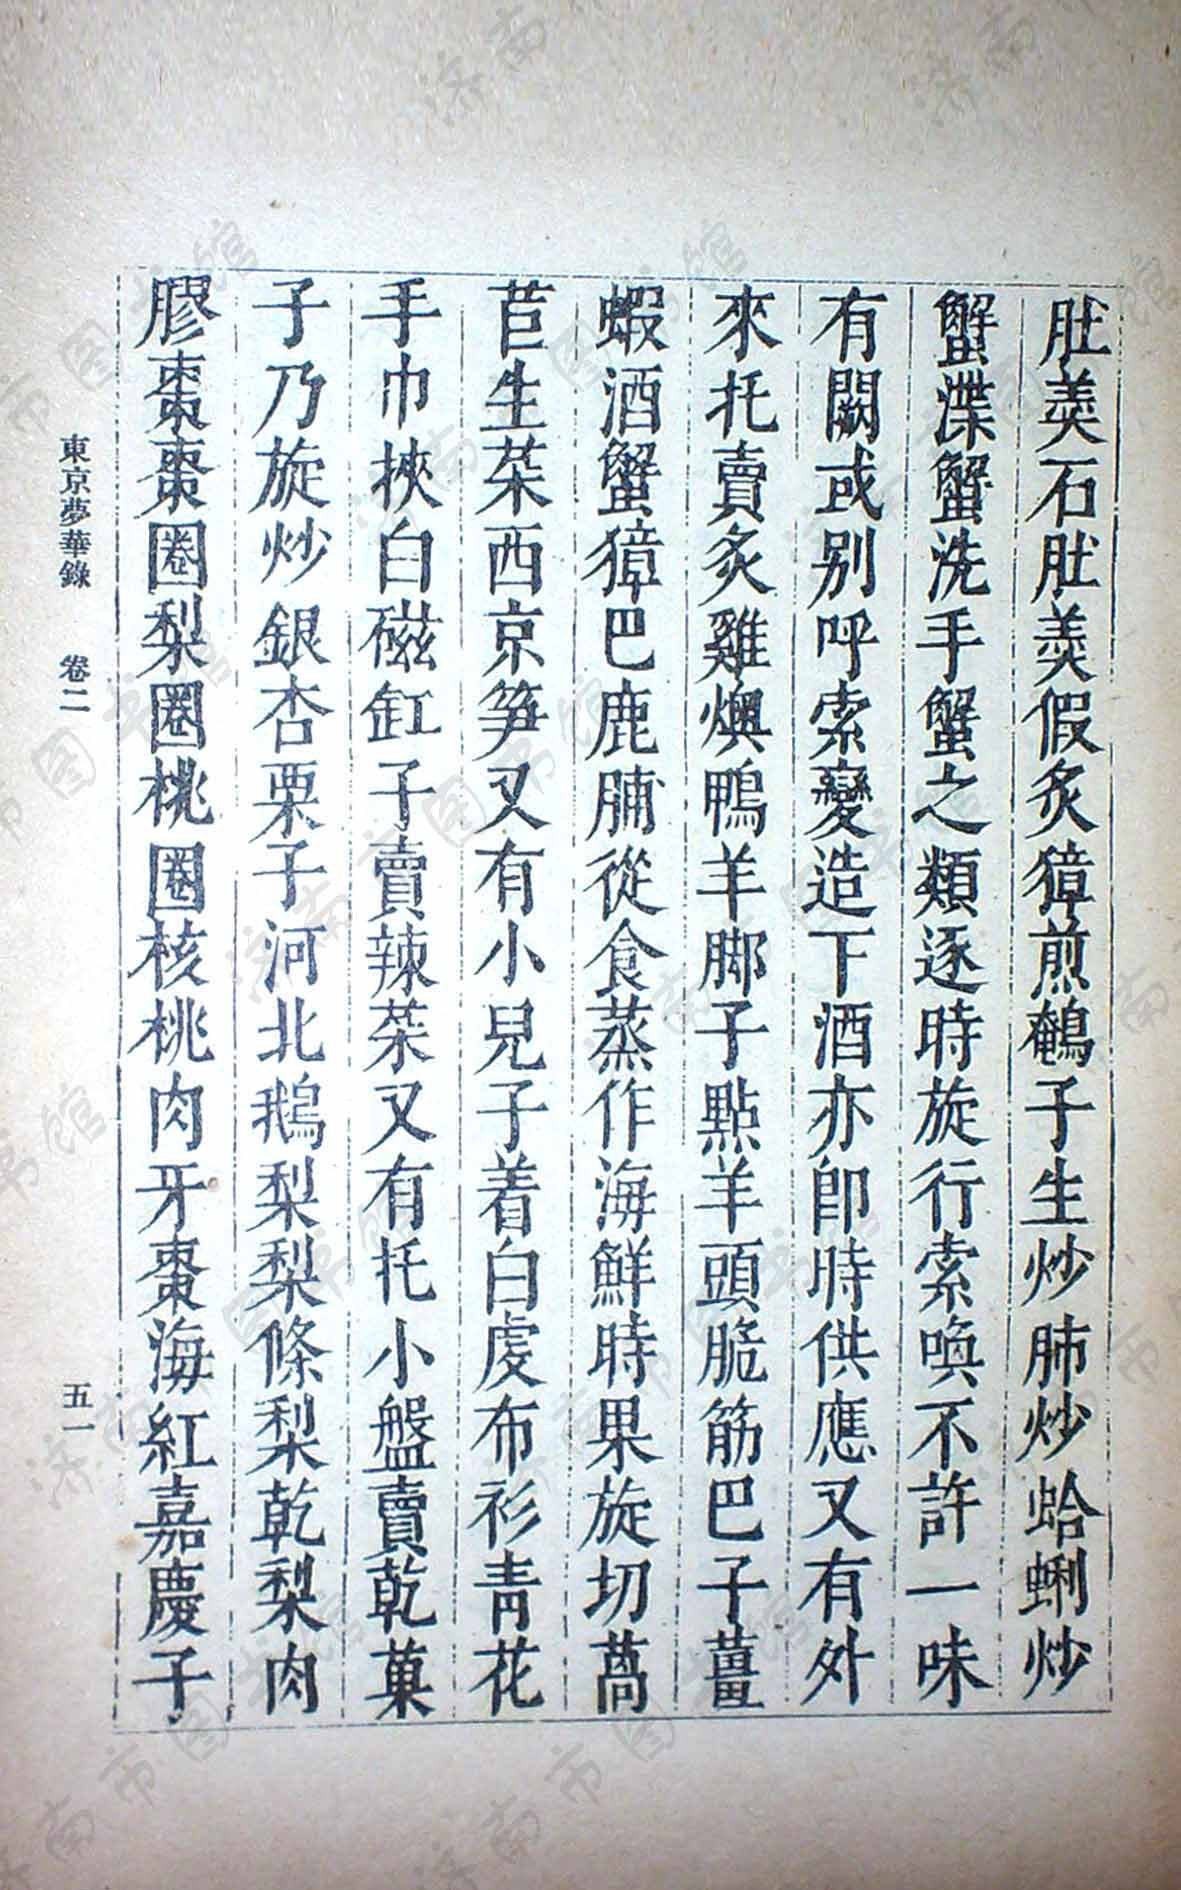 肚羹石肚羹假炙獐煎鵪子生炒肺炒蛤蜊炒
蟹渫蟹洗手蟹之類逐時旋行索喚不許一味
有闕或别呼索變造下酒亦即時供應又有外
來托賣炙雞燠鴨羊脚子點羊頭脆筋巴子薑
蝦酒蟹獐巴鹿脯從食蒸作海鮮時果旋切萵
苣生菜西京笋又有小兒子着白虔布衫青花
手巾挾白磁缸子賣辣菜又有托小盤賣乾菓
子乃旋炒銀杏栗子河北鵝梨梨條梨乾梨肉
膠棗棗圈梨圈桃圈核桃肉牙棗海紅嘉慶子
東京夢華錄 卷二 五一
济南市图书馆